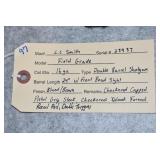 97
Make: L.C. Smith Serial #: 23937
Model: Field Grade
Cal/Ga: 16ga Type: Double Barrel Shotgun
Barrel Length: 28" w/ Front Bead Sight
Finish: Blued/Brown Comments: Checkered Capped
Pistol Grip Stock, Checkered Splinter Forend
Recoil Pad, Double Triggers